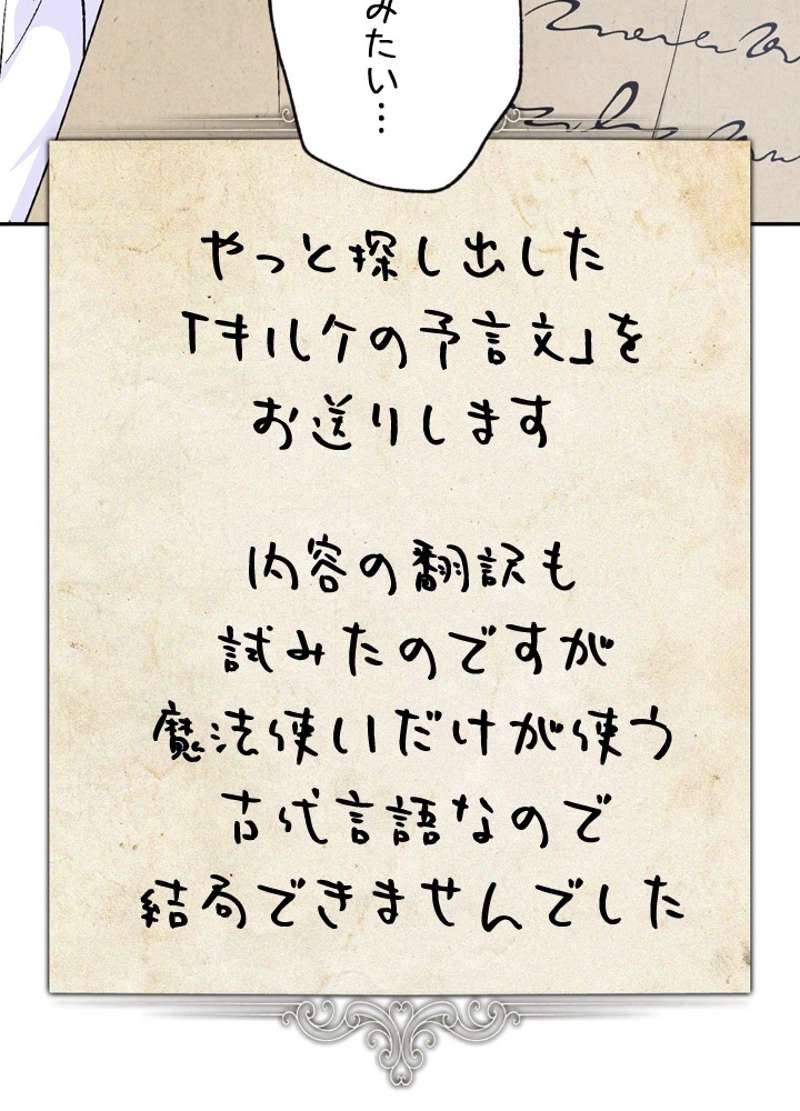 みたい…
やっと探し出した
「キルケの予言文」を
お送りします
内容の翻訳も
試みたのですが
魔法使いだけが使う
古代言語なので
結局できませんでした